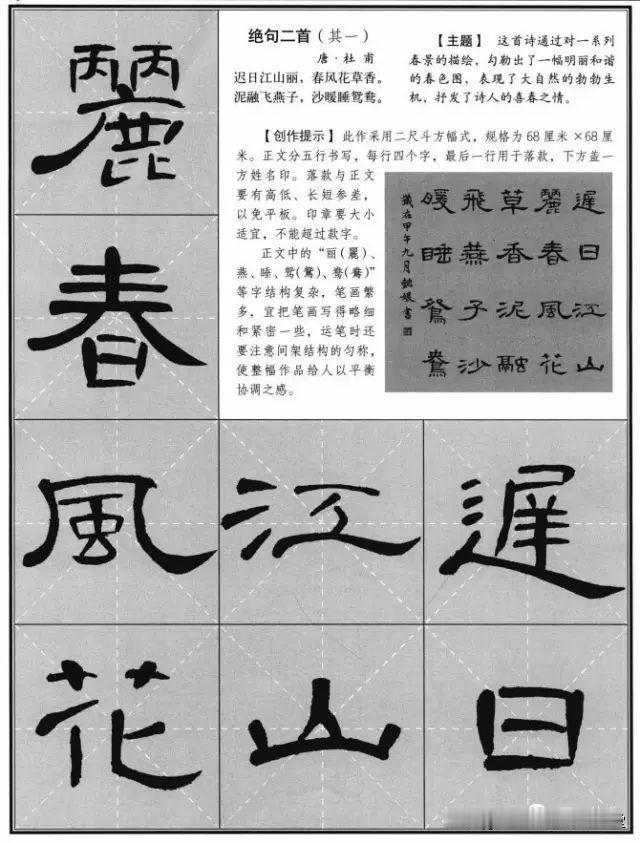 绝句二首（其一）
唐·杜 甫
迟日江山丽，春风花草香。
泥融飞燕子，沙暖睡鸳鸯。
【主题】 这首诗通过对一系列
春景的描绘，勾勒出了一幅明丽和谐
的春色图，表现了大自然的勃勃生
机，抒发了诗人的喜春之情。
【创作提示】此作采用二尺斗方幅式，规格为68厘米×68厘
米。正文分五行书写，每行四个字，最后一行用于落款，下方盖一
方姓名印。落款与正文
要有高低、长短参差，
以免平板。印章要大小
适宜，不能超过款字。
正文中的“丽(麗)、
燕、睡、鸳(鴛)、鸯(鴦)”
等字结构复杂，笔画繁
多，宜把笔画写得略细
和紧密一些，运笔时还
要注意间架结构的匀称，
使整幅作品给人以平衡
协调之感。
遲日江山
麗春風花
草香泥融
飛燕子沙
暖睡鴛鴦
歲在甲午九月
遲日
江山
麗春風花